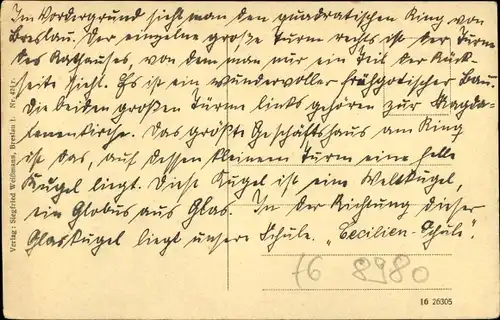 Im Vordergrund sieht man den quadratischen Ring von
Breslau. Der einzelne große Turm rechts ist der Turm
des Rathauses, von dem man nur ein Teil der Rück-
seite sieht. Es ist ein wundervoller frühgotischer Bau.
Die beiden großen Türme links gehören zur Magda-
lenenkirche. Das größte Geschäftshaus am Ring
ist das, auf dessen kleinem Turm eine helle
Kugel liegt. Diese Kugel ist eine Weltkugel,
ein Globus aus Glas. In der Richtung dieser
Glaskugel liegt unsere Schule. „Cecilien-Schule".
Verlag: Siegfried Wollmann, Breslau I.
16 8980
16 26305